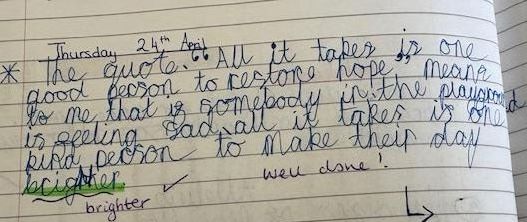 Thursday 24th April
* The quote: "All it takes is one
good person to restore hope" means
to me that is somebody in the playground
is feeling sad, all it takes is one
kind person to make their day
brighter
brighter ✓ well done!